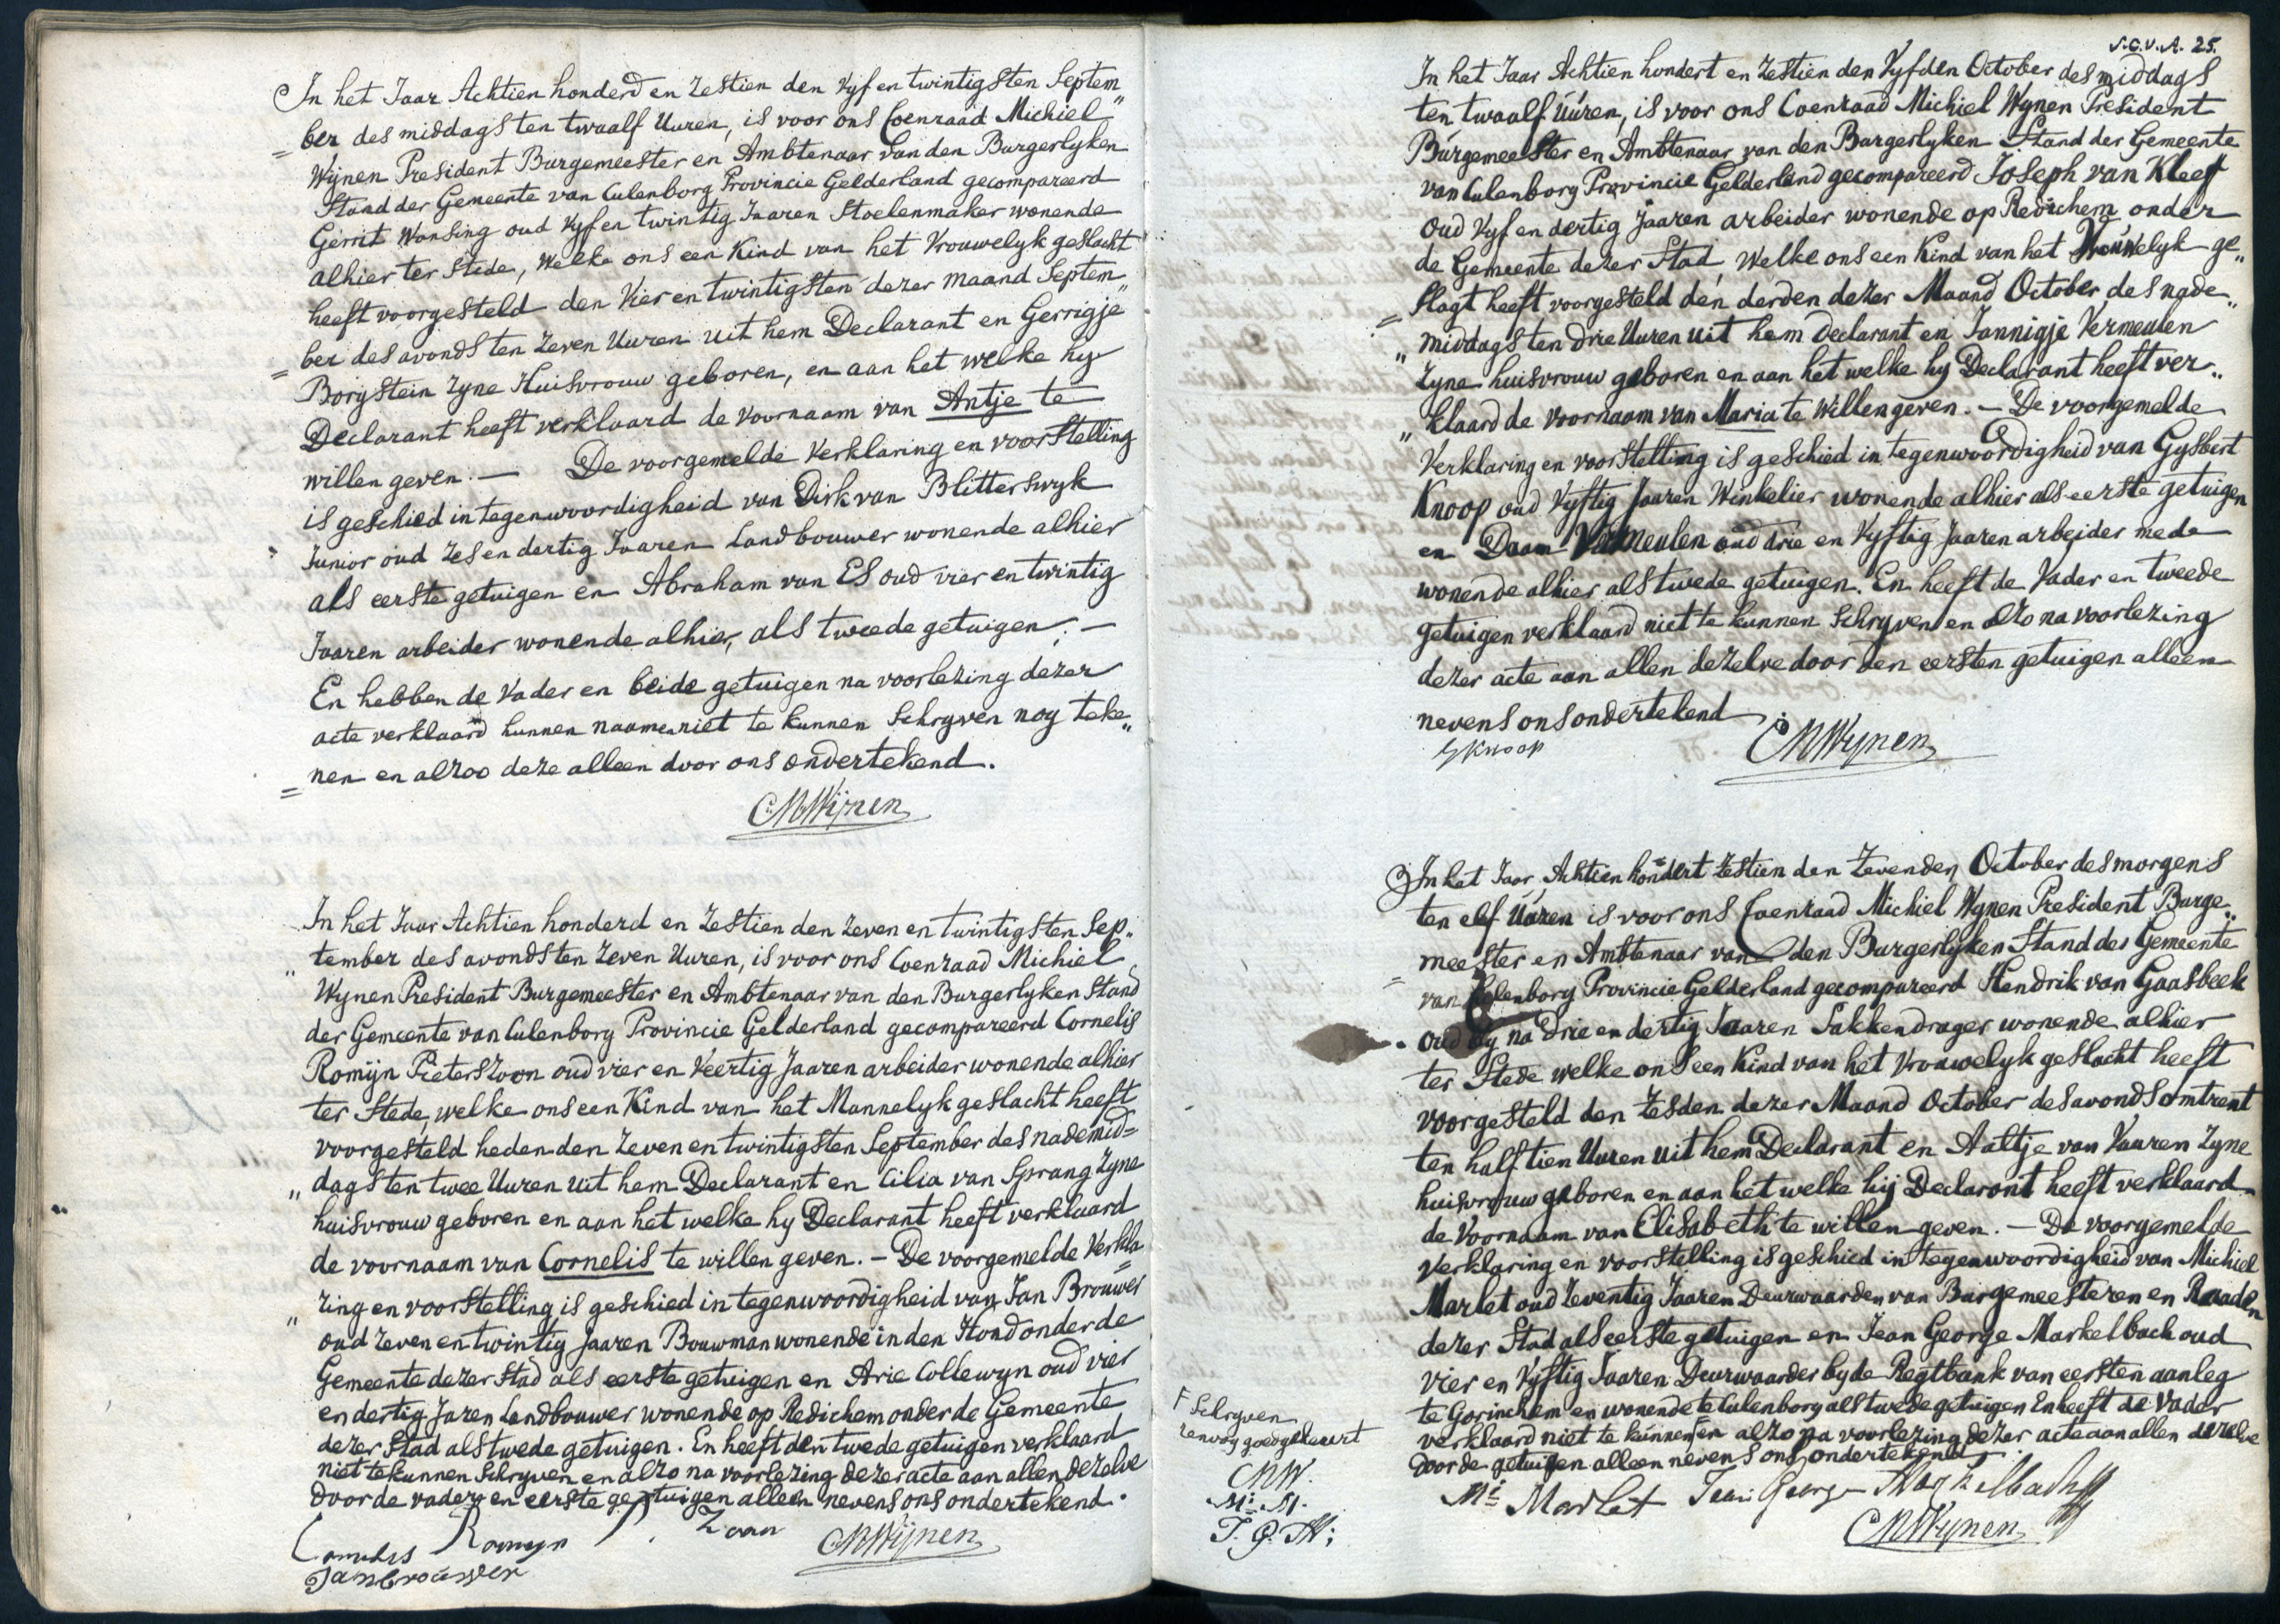 In het Jaar Achtien honderd en Zestien den Vyf en twintigsten Septem„
= ber des middags ten twaalf Uuren, is voor ons Coenraad Michiel
Wijnen President Burgemeester en Ambtenaar van den Burgerlyken
Stand der Gemeente van Culenborg Provincie Gelderland gecompareerd
Gerrit Wansing oud Vyf en twintig Jaaren Stoelenmaker wonende
alhier ter Stede, Welke ons een Kind van het Vrouwelyk geslacht
heeft voorgesteld den Vier en twintigsten dezer maand Septem„
= ber des avonds ten Zeven Uuren uit hem Declarant en Gerrigje
Borgstein Zyne Huisvrouw geboren, en aan het welke hy
Declarant heeft verklaard de Voornaam van Antje te
willen geven. — De voorgemelde Verklaring en voorstelling
is geschied in tegenwoordigheid van Dirk van Blitterswyk
Junior oud Zes en dertig Jaaren Landbouwer wonende alhier
als eerste getuigen en Abraham van Es oud vier en twintig
Jaaren arbeider wonende alhier, als tweede getuigen. —
En hebben de Vader en beide getuigen na voorlezing dezer
acte verklaard hunnen naamen niet te kunnen Schryven nog teke„
= nen en alzoo deze alleen door ons ondertekend.
CMWijnen
In het Jaar Achtien honderd en Zestien den Zeven en twintigsten Sep„
„ tember des avonds ten Zeven Uuren, is voor ons Coenraad Michiel
Wynen President Burgemeester en Ambtenaar van den Burgerlyken Stand
der Gemeente van Culenborg Provincie Gelderland gecompareerd Cornelis
Romijn Pieterszoon oud vier en Veertig Jaaren arbeider wonende alhier
ter Stede, welke ons een Kind van het Mannelyk geslacht heeft
voorgesteld heden den Zeven en twintigsten September des nademid=
„ dags ten twee Uuren uit hem Declarant en Cilia van Sprang Zyne
huisvrouw geboren en aan het welke hy Declarant heeft verklaard
de voornaam van Cornelis te willen geven. — De voorgemelde Verkla
„ ring en voorstelling is geschied in tegenwoordigheid van Jan Brouwer
oud Zeven en twintig Jaaren Bouwman wonende in den Hond onder de
Gemeente dezer Stad als eerste getuigen en Arie Collewyn oud vier
en dertig Jaren Landbouwer wonende op Redichem onder de Gemeente
dezer Stad als twede getuigen. En heeft den twede getuigen verklaard
niet te kunnen Schryven en alzo na voorlezing dezer acte aan allen dezelve
door de vader en eerste getuigen alleen nevens ons ondertekend.
Cornelis Romeyn P. Zoon CMWijnen
Jan brouwer
S.C.V.A. 25.
In het Jaar Achtien hondert en Zestien den Vyfden October des middags
ten twaalf Uúren, is voor ons Coenraad Michiel Wynen President
Burgemeester en Ambtenaar van den Burgerlyken Stand der Gemeente
van Culenborg Provincie Gelderland gecompareerd Joseph van Kleef
Oud Vyf en dertig Jaaren arbeider wonende op Redichem onder
de Gemeente dezer Stad, Welke ons een Kind van het Vrouwelyk ge„
= slagt heeft voorgesteld den derden dezer Maand October des nade„
„ middags ten drie Uuren uit hem declarant en Jannigje Vermeulen
Zyne huisvrouw geboren en aan het welke hy Declarant heeft ver„
„ klaard de voornaam van Maria te Willen geven. — De voorgemelde
Verklaring en voorstelling is geschied in tegenwoordigheid van Gysbert
Knoop oud Vyftig Jaaren Winkelier wonende alhier als eerste getuigen
en Daam Vermeulen oud drie en Vyftig Jaaren arbeider mede
wonende alhier als twede getuigen. En heeft de Vader en tweede
getuigen verklaard niet te kunnen Schryven en alzo na voorlezing
dezer acte aan allen dezelve door den eersten getuigen alleen
nevens ons ondertekend
G Knoop CMWynen
In het Jaar Achtien hondert Zestien den Zevenden October des morgens
ten elf Uúren is voor ons Coenraad Michiel Wynen President Burge„
= meester en Ambtenaar van den Burgerlyken Stand der Gemeente
van Culenborg Provincie Gelderland gecompareerd Hendrik van Gaasbeek
oud by na Drie en dertig Jaaren Sakkendrager wonende alhier
ter Stede welke ons een Kind van het Vrouwelyk geslacht heeft
voorgesteld den Zesden dezer Maand October des avonds omtrent
ten half tien Uuren uit hem Declarant en Aaltje van Vuuren Zyne
huisvrouw geboren en aan het welke hij Declarant heeft verklaard
de Voornaam van Elisabeth te willen geven. — De voorgemelde
Verklaring en voorstelling is geschied in tegenwoordigheid van Michiel
Marlet oud Zeventig Jaaren Deurwaarder van Burgemeesteren en Raaden
dezer Stad als eerste getuigen en Jean George Markelbach oud
vier en Vyftig Jaaren Deurwaarder by de Regtbank van eersten aanleg
te Gorinchem en wonende te Culenborg als twede getuigen En heeft de Vader
verklaard niet te kunnen ꟻ en alzo na voorlezing dezer acte aan allen dezelve
door de getuigen alleen nevens ons ondertekend
ꟻ Schryven
renvoy goedgekeurt
CMW.
Mi. M.
J. G. M:
Mi Marlet Jean George Markelbach
CMWynen